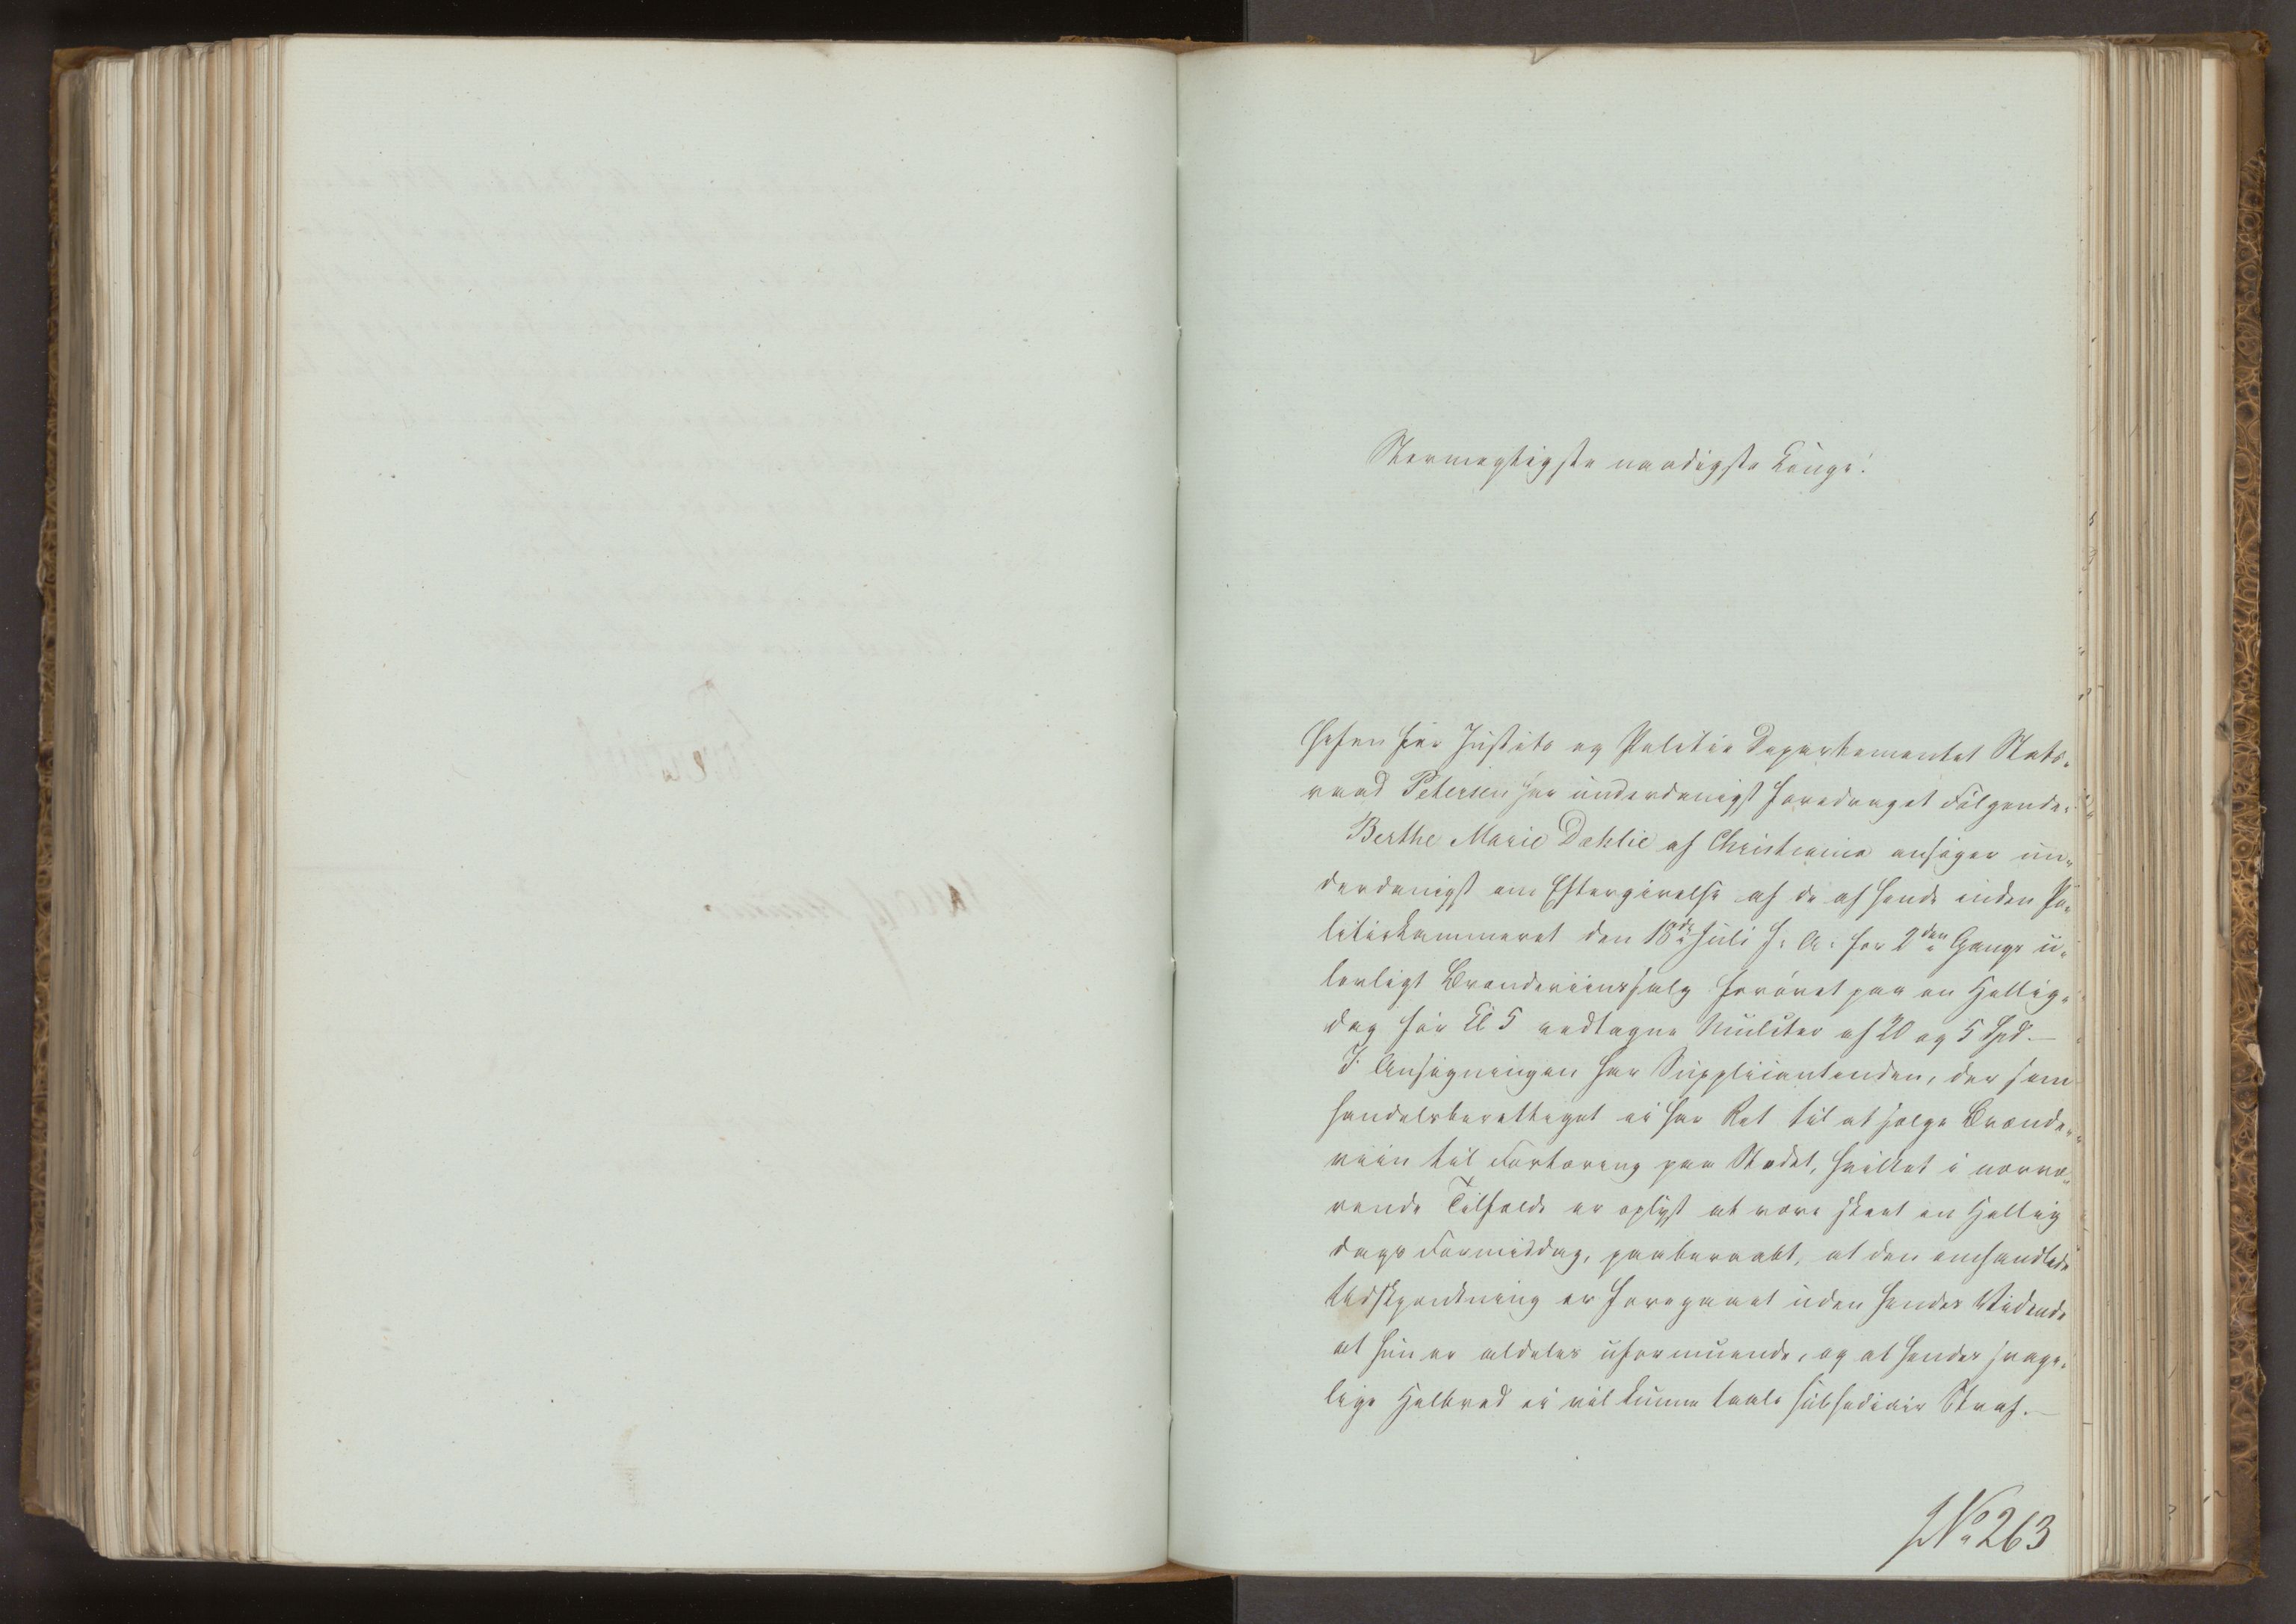 Stormægtigste naadigste Konge!
Chefen for Justits og Politie Departementet Stats-
raad Petersen har underdanigst foredraget Følgende:
Berthe Marie Dæhlie af Christiania ansøger un-
derdanigst om Eftergivelse af de af hende inden Po-
litiekammeret den 18de Juli f: A: for 2den Gangs u-
lovligt Brændeviinssalg forøvet paa en Hellig-
dag før Kl 5 vedtagne Mulcter af 20 og 5 Spd.—
I Ansøgningen har Supplicantinden, der som
handelsberettiget ei har Ret til at sælge Brænde-
viin til Fortæring paa Stedet, hvilket i nærvæ-
rende Tilfælde er oplyst at være skeet en Hellig
dags Formiddag, paaberaabt, at den omhandlede
Udskjænkning er foregaaet uden hendes Vidende
at hun er aldeles uformuende, og at hendes svage-
lige Helbred ei vil kunne taale subsidiair Straf.—
No 263